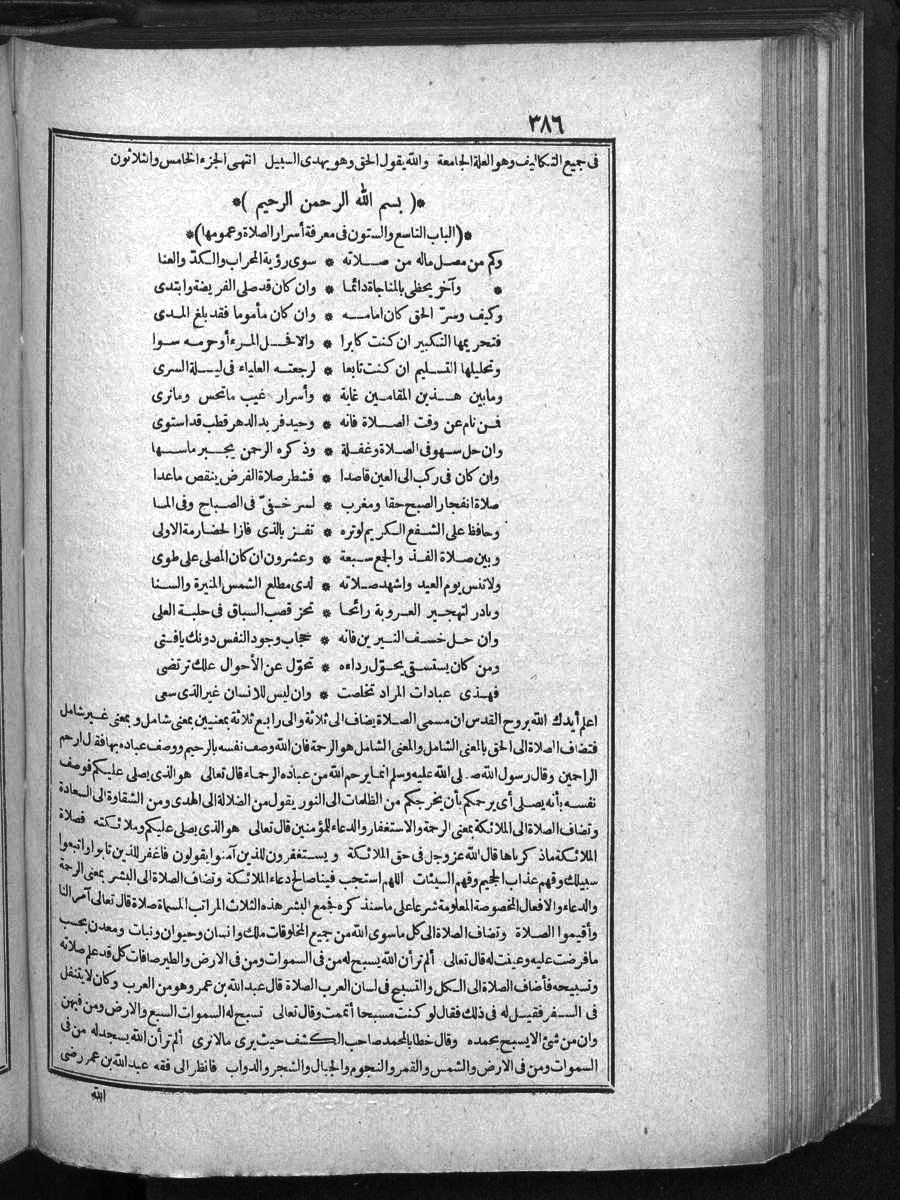 ٣٨٦
فى جميع التكاليف وهو العلة الجامعة والله يقول الحق وهو يهدى السبيل انتهى الجزء الخامس والثلاثون
*( بسم الله الرحمن الرحيم )*
*(الباب التاسع والستون فى معرفة أسرار الصلاة وعمومها)*
وكم من مصل ماله من صلاته * سوى رؤية المحراب والكدّ والعنا
* وآخر يحظى بالمناجاة دائما * وان كان قد صلى الفريضة وابتدى
وكيف وسرّ الحق كان امامه * وان كان مأموما فقد بلغ المدى
فتحريمها التكبير ان كنت كابرا * والا فحل المرء أو حرمه سوا
وتحليلها التسليم ان كنت تابعا * لرجعته العلياء فى ليلة السرى
ومابين هذين المقامين غاية * وأسرار غيب ماتحس وماترى
فمن نام عن وقت الصلاة فانه * وحيد فريد الدهر قطب قد استوى
وان حل سهو فى الصلاة وغفلة * وذكره الرحمن يجبر ماسها
وان كان فى ركب الى العين قاصدا * فشطر صلاة الفرض ينقص ماعدا
صلاة انفجار الصبح حقا ومغرب * لسر خفىّ فى الصباح وفى المسا
وحافظ على الشفع الكريم لوتره * تفز بالذى فازا لحضارمة الاولى
وبين صلاة الفذ والجمع سبعة * وعشرون ان كان المصلى على طوى
ولاتنس يوم العيد واشهد صلاته * لدى مطلع الشمس المنيرة والسنا
وبادر لتهجير العروبة رائحا * تحز قصب السباق فى حلبة العلى
وان حل خسف النيرين فانه * حجاب وجود النفس دونك يافتى
ومن كان يستسقى يحوّل رداءه * تحوّل عن الأحوال علك ترتضى
فهذى عبادات المراد تخلصت * وان ليس للانسان غير الذى سعى
اعلم أيدك الله بروح القدس ان مسمى الصلاة يضاف الى ثلاثة والى رابع ثلاثة بمعنيين بمعنى شامل وبمعنى غير شامل
فتضاف الصلاة الى الحق بالمعنى الشامل والمعنى الشامل هو الرحمة فان الله وصف نفسه بالرحيم ووصف عباده بها فقال ارحم
الراحمين وقال رسول الله صلى الله عليه وسلم انما يرحم الله من عباده الرحماء قال تعالى هو الذى يصلى عليكم فوصف
نفسه بأنه يصلى أى يرحمكم بأن يخرجكم من الظلمات الى النور يقول من الضلالة الى الهدى ومن الشقاوة الى السعادة
وتضاف الصلاة الى الملائكة بمعنى الرحمة والاستغفار والدعاء للمؤمنين قال تعالى هو الذى يصلى عليكم وملائكته فصلاة
الملائكة ماذكرناها قال الله عز وجل فى حق الملائكة ويستغفرون للذين آمنوا يقولون فاغفر للذين تابوا واتبعوا
سبيلك وقهم عذاب الجحيم وقهم السيئات اللهم استجب فينا صالح دعاء الملائكة وتضاف الصلاة الى البشر بمعنى الرحمة
والدعاء والافعال المخصوصة المعلومة شرعا على ماسنذكره فجمع البشر هذه الثلاث المراتب المسماة صلاة قال تعالى آمرا لنا
وأقيموا الصلاة وتضاف الصلاة الى كل ماسوى الله من جميع المخلوقات ملك وانسان وحيوان ونبات ومعدن بحسب
مافرضت عليه وعينت له قال تعالى ألم تر أن الله يسبح له من فى السموات ومن فى الارض والطير صافات كل قد علم صلاته
وتسبيحه فأضاف الصلاة الى الكل والتسبيح فى لسان العرب الصلاة قال عبد الله بن عمر وهو من العرب وكان لايتنفل
فى السفر فقيل له فى ذلك فقال لو كنت مسبحا أتممت وقال تعالى تسبح له السموات السبع والارض ومن فيهن
وان من شئ الا يسبح بحمده وقال خطابا لمحمد صاحب الكشف حيث يرى مالانرى ألم تر أن الله يسجد له من فى
السموات ومن فى الارض والشمس والقمر والنجوم والجبال والشجر والدواب فانظر الى فقه عبد الله بن عمر رضى
الله